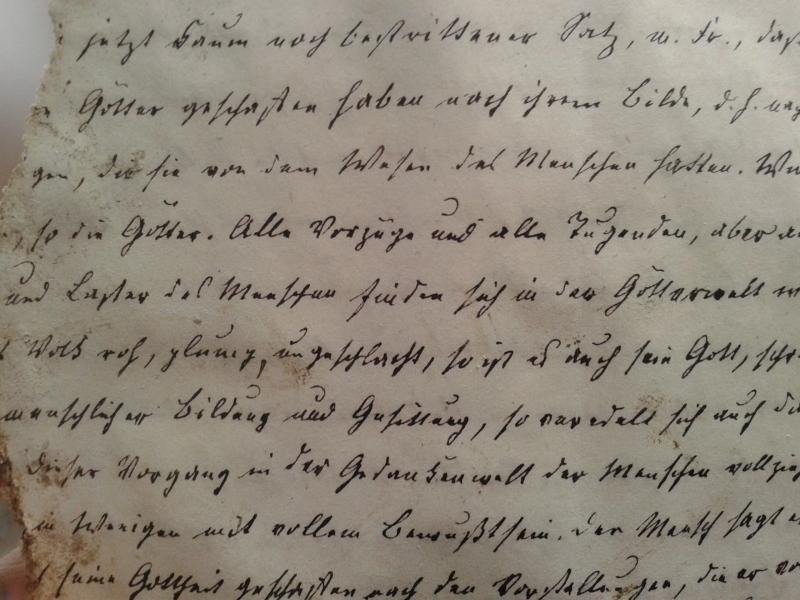 jetzt kaum noch bestrittener Satz, m. Fr., daß
Götter geschaffen haben nach ihrem Bilde, d. h. nach
gen, die sie von dem Wesen des Menschen hatten. Wie
so die Götter. Alle Vorzüge und alle Tugenden, aber a
und Laster des Menschen finden sich in der Götterwelt w
Volk roh, plump, ungeschlacht, so ist es auch sein Gott, schr
menschlicher Bildung und Gesittung, so veredelt sich auch di
dieser Vorgang in der Gedankenwelt der Menschen vollzieh
Wenigen mit vollem Bewußtsein. Der Mensch sagt e
seine Gottheit geschaffen nach den Vorstellungen, die er vo